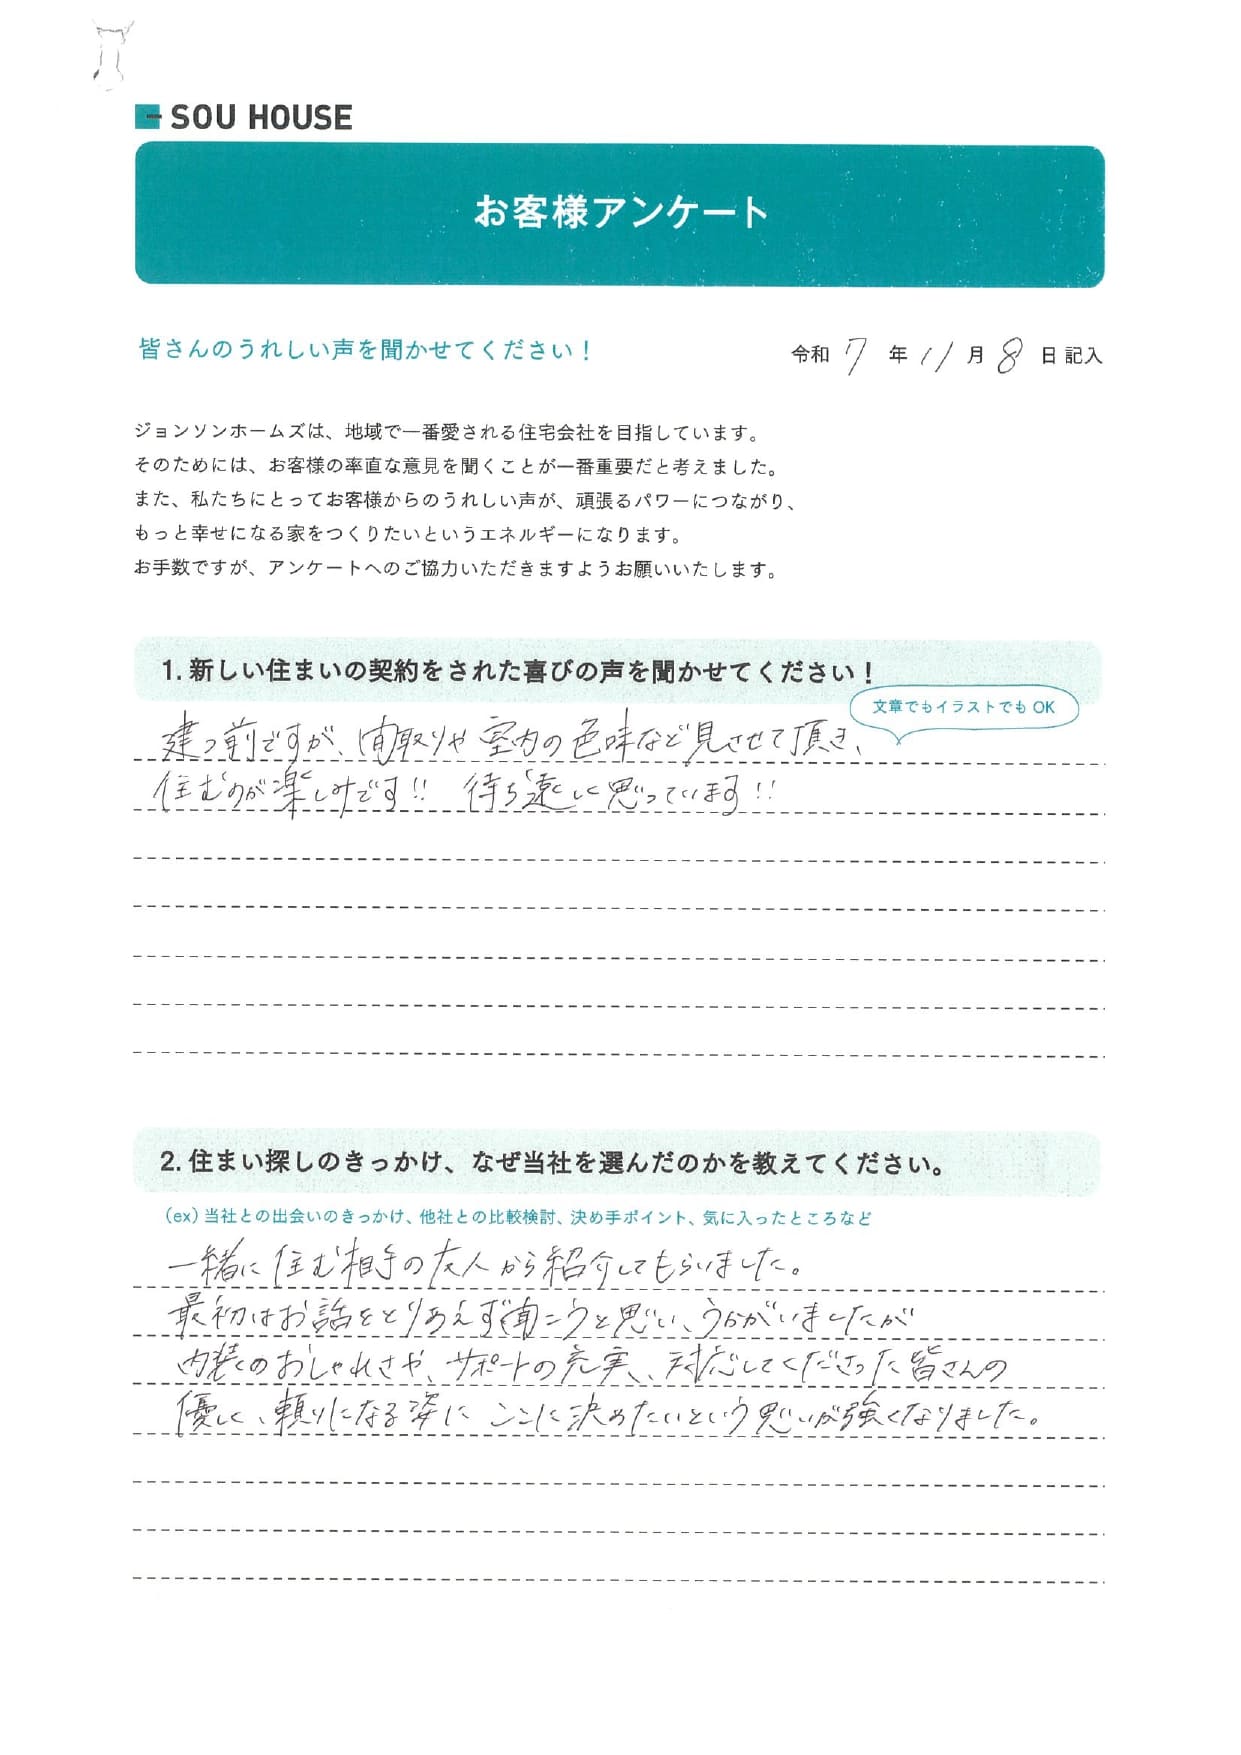 SOU HOUSE
お客様アンケート
皆さんのうれしい声を聞かせてください！
令和 7 年 11 月 8 日 記入
ジョンソンホームズは、地域で一番愛される住宅会社を目指しています。
そのためには、お客様の率直な意見を聞くことが一番重要だと考えました。
また、私たちにとってお客様からのうれしい声が、頑張るパワーにつながり、
もっと幸せになる家をつくりたいというエネルギーになります。
お手数ですが、アンケートへのご協力いただきますようお願いいたします。
1. 新しい住まいの契約をされた喜びの声を聞かせてください！
文章でもイラストでも OK
建つ前ですが、間取りや室内の色味など見させて頂き、
住むのが楽しみです!! 待ち遠しく思っています!!
2. 住まい探しのきっかけ、なぜ当社を選んだのかを教えてください。
（ex）当社との出会いのきっかけ、他社との比較検討、決め手ポイント、気に入ったところなど
一緒に住む相手の友人から紹介してもらいました。
最初はお話をとりあえず聞こうと思い、うかがいましたが
内装のおしゃれさや、サポートの充実、対応してくださった皆さんの
優しく、頼りになる姿に ここに決めたいという思いが強くなりました。